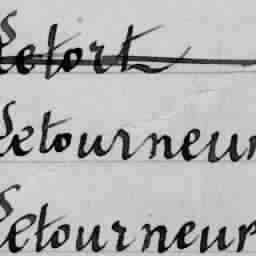 Letort
Letourneur
Letourneur